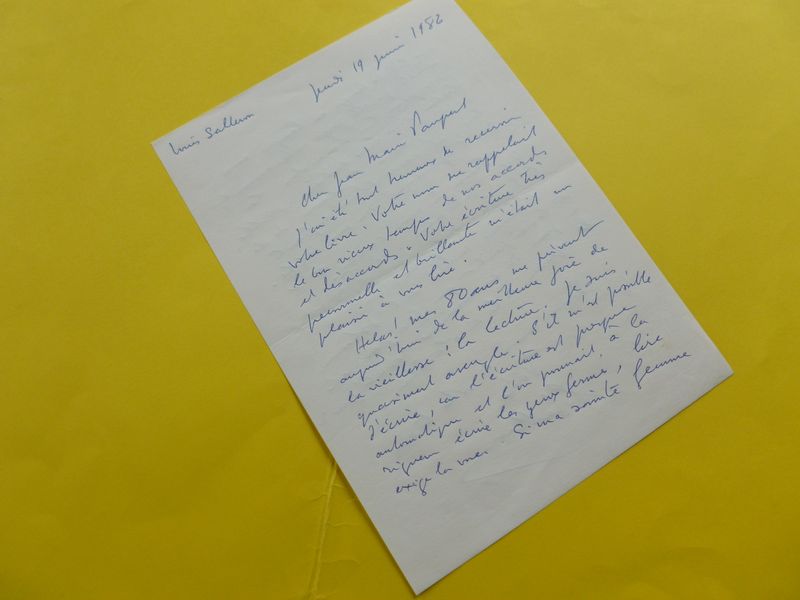 Louis Salleron
jeudi 19 juin 1986
Cher Jean Marie Paupert
J'ai été tout heureux de recevoir
votre livre. Votre nom me rappelait
le bon vieux temps de nos accords
et désaccords. Votre écriture très
personnelle et brillante m'était un
plaisir à vous lire.
Hélas! mes 80 ans me privent
aujourd'hui de la meilleure joie de
la vieillesse : la lecture. Je suis
quasiment aveugle. S'il m'est possible
d'écrire, car l'écriture est presque
automatique et l'on pourrait à la
rigueur écrire les yeux fermés, lire
exige la vue. Si ma sainte femme